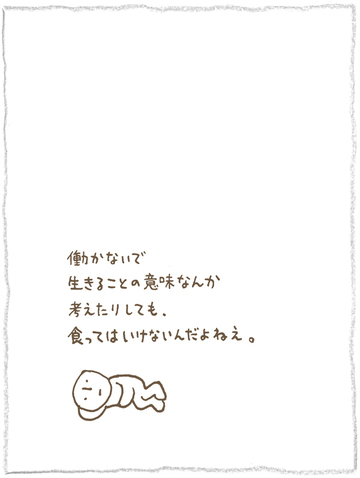 働かないで
生きることの意味なんか
考えたりしても、
食ってはいけないんだよねえ。